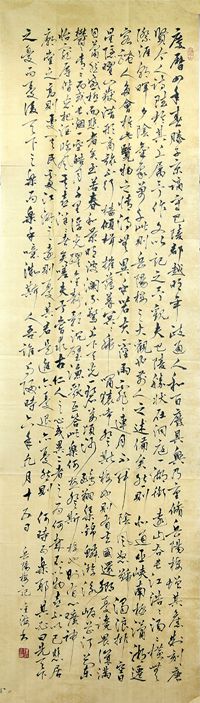 慶曆四年春滕子京謫守巴陵郡越明年政通人和百廢具興乃重脩岳陽樓增其舊制刻唐
賢今人詩賦於其上屬予作文以記之予觀夫巴陵勝狀在洞庭一湖銜遠山吞長江浩浩湯湯橫無
際涯朝暉夕陰氣象萬千此則岳陽樓之大觀也前人之述備矣然則北通巫峽南極瀟湘遷
客騷人多會於此覽物之情得無異乎若夫霪雨霏霏連月不開陰風怒號濁浪排空日
星隱曜山岳潛形商旅不行檣傾楫摧薄暮冥冥虎嘯猿啼登斯樓也則有去國懷鄉憂讒畏譏滿
目蕭然感極而悲者矣至若春和景明波瀾不驚上下天光一碧萬頃沙鷗翔集錦鱗游泳岸芷汀蘭鬱
鬱青青而或長煙一空皓月千里浮光躍金靜影沉璧漁歌互答此樂何極登斯樓也則有心曠神
怡寵辱偕忘把酒臨風其喜洋洋者矣嗟夫予嘗求古仁人之心或異二者之為何哉不以物喜不以己悲居
廟堂之高則憂其民處江湖之遠則憂其君是進亦憂退亦憂然則何時而樂耶其必曰先天下
之憂而憂後天下之樂而樂乎噫微斯人吾誰與歸時六年九月十五日
岳陽樓記